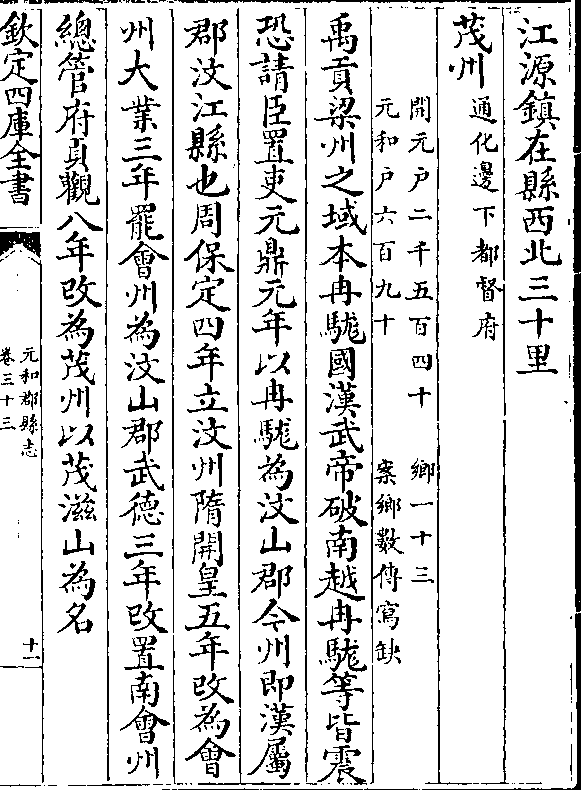 江源鎮在縣西北三十里
茂州 通化邊下都督府
開元户二千五百四十 鄉一十三
元和户六百九十 案鄉數傳寫缺
禹貢梁州之域本冉駹國漢武帝破南越冉駹等皆震
恐請臣置吏元鼎元年以冉駹為汶山郡今州即漢屬
郡汶江縣也周保定四年立汶州隋開皇五年改為會
州大業三年罷會州為汶山郡武德三年改置南會州
總管府貞觀八年改為茂州以茂滋山為名
欽定四庫全書
元和郡縣志
卷三十三
十一